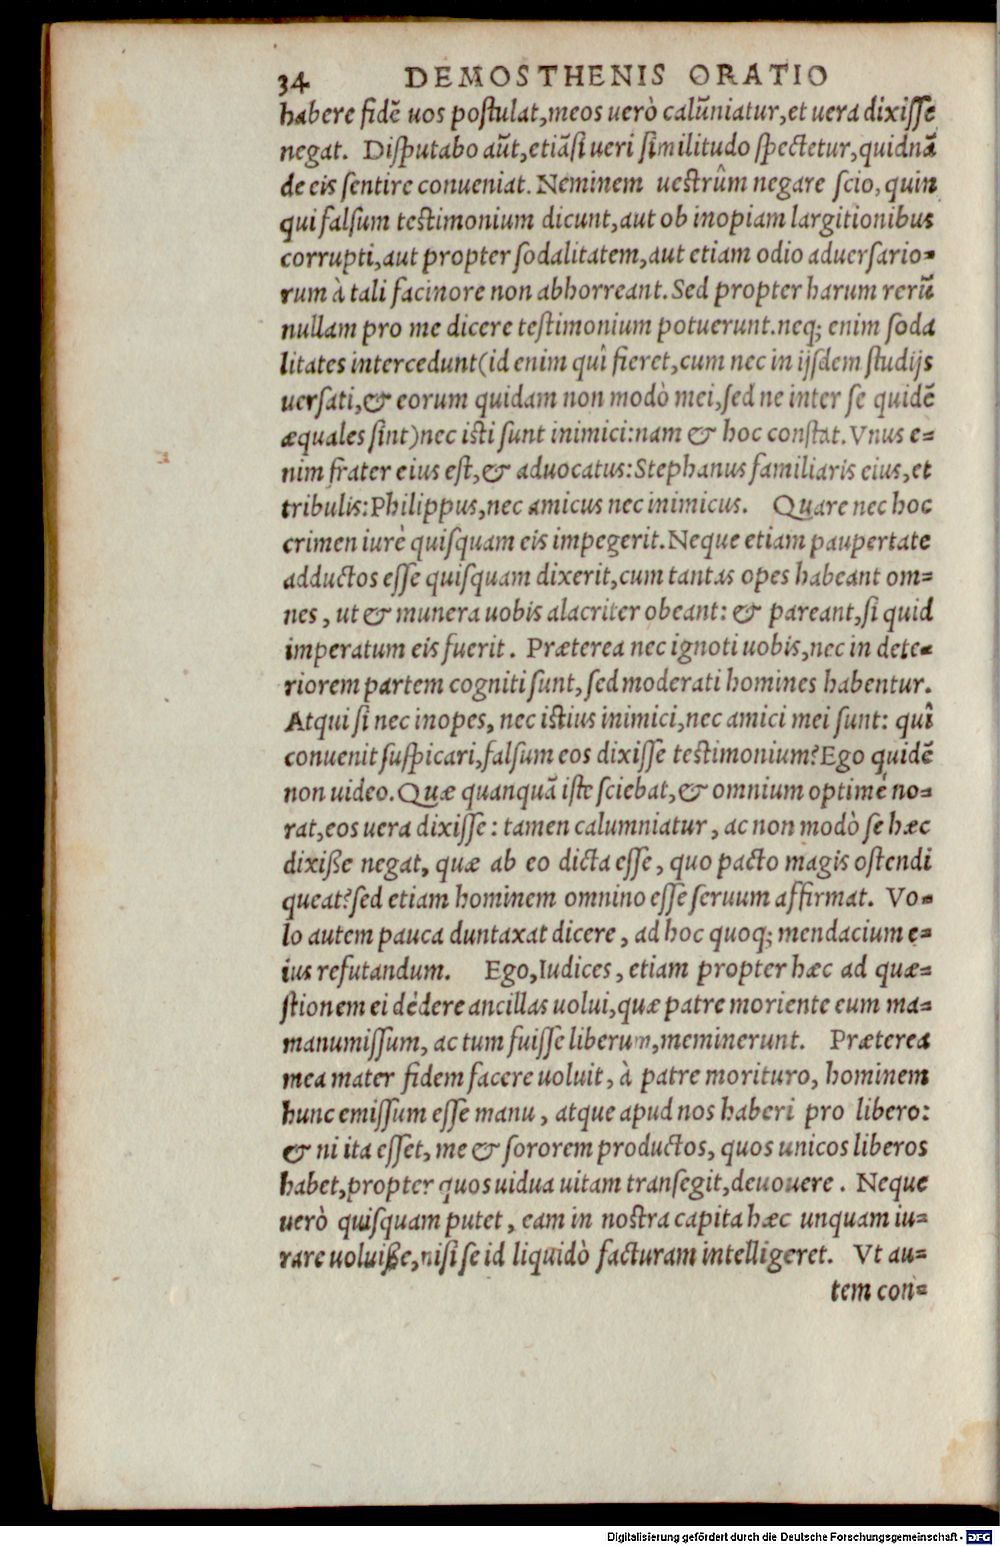 34 DEMOSTHENIS ORATIO
habere fidẽ uos postulat,meos uerò calũniatur,et uera dixisse
negat. Disputabo aũt,etiãsi ueri similitudo spectetur,quidnã
de eis sentire conueniat. Neminem uestrûm negare scio, quin
qui falsum testimonium dicunt,aut ob inopiam largitionibus
corrupti,aut propter sodalitatem,aut etiam odio aduersario=
rum à tali facinore non abhorreant. Sed propter harum rerũ
nullam pro me dicere testimonium potuerunt.neq; enim soda
litates intercedunt(id enim quî fieret,cum nec in ijsdem studijs
uersati,& eorum quidam non modò mei,sed ne inter se quidẽ
æquales sint)nec isti sunt inimici:nam & hoc constat. Vnus e=
nim frater eius est,& aduocatus:Stephanus familiaris eius,et
tribulis:Philippus,nec amicus nec inimicus. Quare nec hoc
crimen iurè quisquam eis impegerit. Neque etiam paupertate
adductos esse quisquam dixerit,cum tantas opes habeant om=
nes, ut & munera uobis alacriter obeant: & pareant,si quid
imperatum eis fuerit. Præterea nec ignoti uobis,nec in dete=
riorem partem cogniti sunt, sed moderati homines habentur.
Atqui si nec inopes, nec istius inimici,nec amici mei sunt: quî
conuenit suspicari,falsum eos dixisse testimonium? Ego quidẽ
non uideo. Quæ quanquã iste sciebat,& omnium optimè no=
rat,eos uera dixisse: tamen calumniatur, ac non modò se hæc
dixiße negat, quæ ab eo dicta esse, quo pacto magis ostendi
queat?sed etiam hominem omnino esse seruum affirmat. Vo=
lo autem pauca duntaxat dicere, ad hoc quoq; mendacium e=
ius refutandum. Ego,Iudices, etiam propter hæc ad quæ=
stionem ei dédere ancillas uolui,quæ patre moriente eum ma=
manumissum, ac tum fuisse liberum,meminerunt. Præterea
mea mater fidem facere uoluit, à patre morituro, hominem
hunc emissum esse manu, atque apud nos haberi pro libero:
& ni ita esset, me & sororem productos, quos unicos liberos
habet,propter quos uidua uitam transegit,deuouere. Neque
uerò quisquam putet, eam in nostra capita hæc unquam iu=
rare uoluiße,nisi se id liquidò facturam intelligeret. Vt au=
tem con=
Digitalisierung gefördert durch die Deutsche Forschungsgemeinschaft - DFG